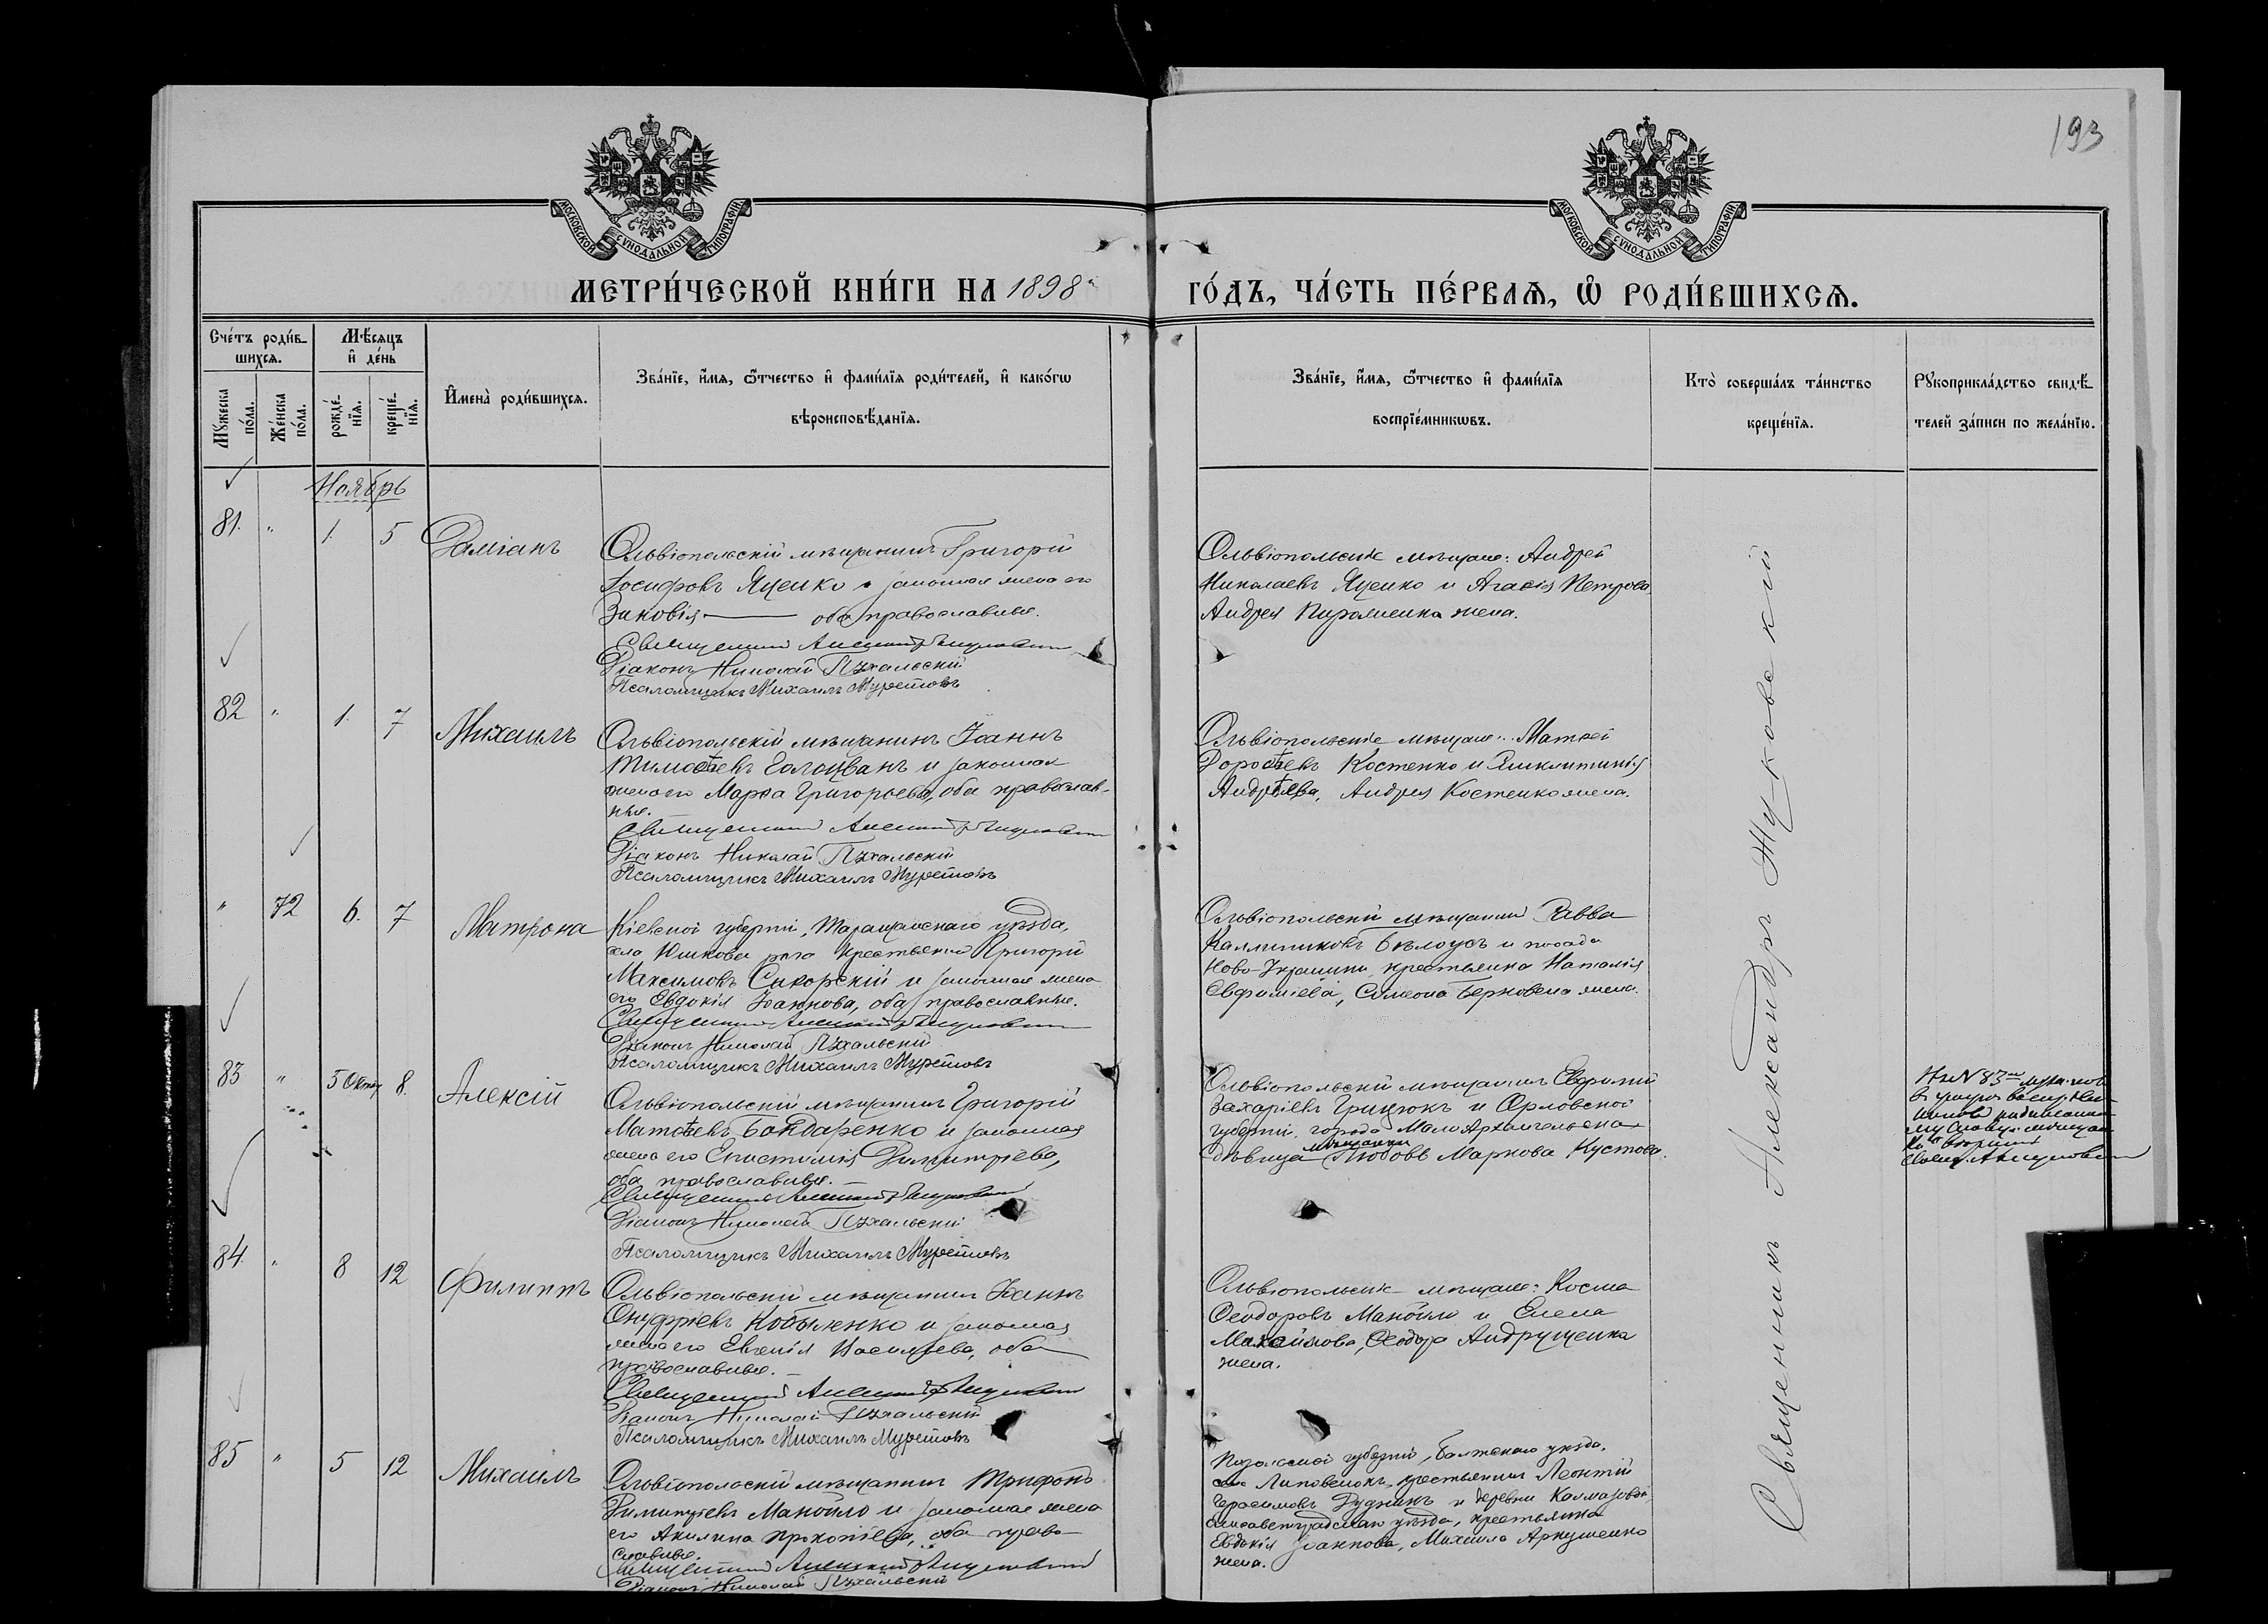 193
МОСКОВСКОЙ СѴНОДАЛЬНОЙ ТИПОГРАФІИ
МОСКОВСКОЙ СѴНОДАЛЬНОЙ ТИПОГРАФІИ
МЕТРИ́ЧЕСКОЙ КНИ́ГИ НА 1898й
ГО́ДЪ, ЧА́СТЬ ПЕ́РВАѦ, Ѡ РОДИ́ВШИХСѦ.
Сче́тъ роди́в-
шихсѧ.
Мꙋ́жеска по́ла.
Же́нска по́ла.
Мѣ́сѧцъ
и҆ де́нь
рожде́-нїѧ.
креще́-нїѧ.
И҆мена̀ роди́вшихсѧ.
Зва́нїе, и҆́мѧ, ѻ҆́тчество и҆ фами́лїѧ роди́телей, и҆ како́гѡ
вѣроисповѣ́данїѧ.
Зва́нїе, и҆́мѧ, ѻ҆́тчество и҆ фами́лїѧ
воспрїе́мникѡвъ.
Кто̀ соверша́лъ та́инство
креще́нїѧ.
Рꙋкоприкла́дство свидѣ́-
телей за́писи по жела́нїю.
Ноябрь
81. " 1. 5 Даміанъ
Ольвіопольскій мѣщанинъ Григорій
Іосифовъ Яценко и законная жена его
Зиновія — оба православные.
Священникъ
Діаконъ Николай Пухальскій
Псаломщикъ Михаилъ Муретовъ
Ольвіопольскіе мѣщане: Андрей
Николаевъ Яценко и Агаѳія Петрова,
Андрея жена.
82 " 1. 7 Михаилъ
Ольвіопольскій мѣщанинъ Іоаннъ
Тимоѳѣевъ Голованъ и законная
жена его Марѳа Григорьева, оба православ-
ные.
Священникъ
Діаконъ Николай Пухальскій
Псаломщикъ Михаилъ Муретовъ
Ольвіопольскіе мѣщане: Матѳей
Дороѳѣевъ Костенко и
Андрѣева, Андрея Костенко жена.
" 72 6. 7 Матрона
Кіевской губерніи, Таращанскаго уѣзда,
села Юшкова рога крестьянинъ Григорій
Максимовъ Сикорскій и законная жена
его Евдокія Іоаннова, оба православные.
Священникъ
Діаконъ Николай Пухальскій
Псаломщикъ Михаилъ Муретовъ
Ольвіопольскій мѣщанинъ Савва
Каллиниковъ Бѣлоусъ и посада
Ново-Украинки крестьянка Наталія
Евфиміева, Симеона жена.
83 " 5 Октяб 8. Алексій
Ольвіопольскій мѣщанинъ Григорій
Матѳѣевъ Бондаренко и законная
жена его Епистимія Димитріева,
оба православные.
Священникъ
Діаконъ Николай Пухальскій
Псаломщикъ Михаилъ Муретовъ
Ольвіопольскій мѣщанинъ Евфимій
Захаріевъ Грицюкъ и Орловской
губерніи города МалоАрхангельска
мѣщанка
дѣвица Любовь Маркова Кустова.
84. " 8 12 Филиппъ
Ольвіопольскій мѣщанинъ Іоаннъ
Онуфріевъ Кобыленко и законная
жена его Евгенія Васильева, оба
православные.
Священникъ
Діаконъ Николай Пухальскій
Псаломщикъ Михаилъ Муретовъ
Ольвіопольскіе мѣщане: Косма
Ѳеодоровъ Манойло и Елена
Михайлова, Ѳеодора Андрущенка
жена.
85 " 5 12 Михаилъ
Ольвіопольскій мѣщанинъ Трифонъ
Димитріевъ Манойло и законная жена
его Акилина Прокопіева, оба право-
славные.
Священникъ
Діаконъ Николай Пухальскій
Подольской губерніи, Балтскаго уѣзда,
села крестьянинъ Леонтій
Герасимовъ и деревни
Елисаветградскаго уѣзда, крестьянка
Евдокія Іоаннова, Михаила
жена.
Священникъ Александръ Жуковскій